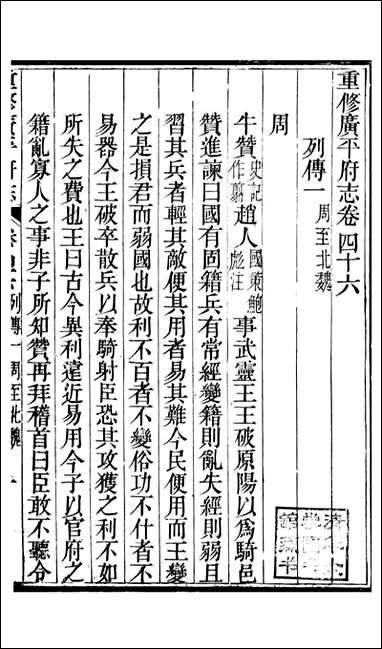 重修廣平府志卷四十六
列傳一 周至北魏
周
牛贊史記作翦趙人國策鮑彪注事武靈王王破原陽以爲騎邑
贊進諫曰國有固籍兵有常經變籍則亂失經則弱且
習其兵者輕其敵便其用者易其難今民便用而王變
之是損君而弱國也故利不百者不變俗功不什者不
易器今王破卒散兵以奉騎射臣恐其攻獲之利不如
所失之費也王曰古今異利遠近易用今子以官府之
籍亂寡人之事非子所知贊再拜稽首曰臣敢不聽令
重修廣平府志 列傳一 周至北魏 一